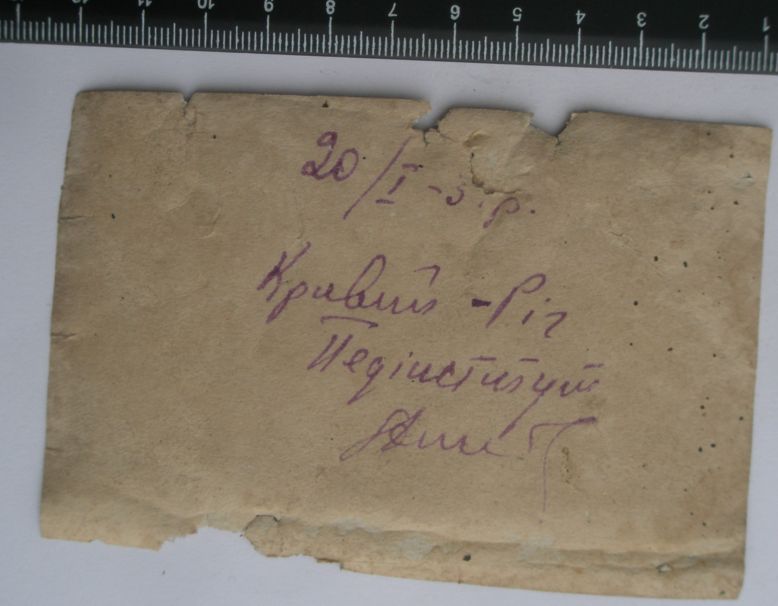 13 12 11 10 9 8 7 6 5 4 3 2 1
20/I - з. р.
Кривий - Ріг
Педінститут